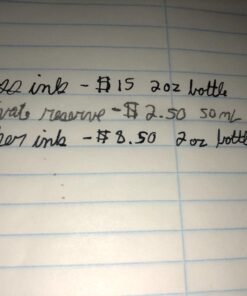 ink - $15 2oz bottle
reserve - $2.50 50mL
ink - $8.50 2oz bottl